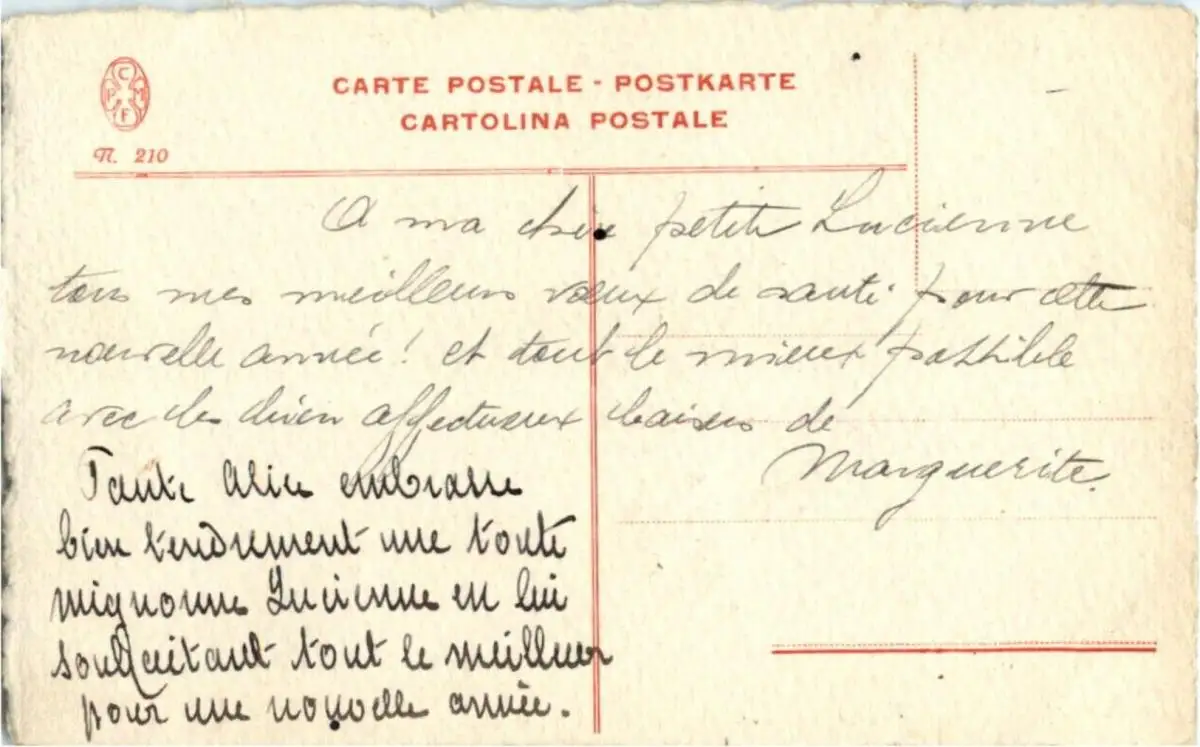 C
P M
F
N. 210
CARTE POSTALE - POSTKARTE
CARTOLINA POSTALE
A ma chère petite Lucienne
tous mes meilleurs vœux de santé pour cette
nouvelle année! et tout le mieux possible
avec les bien affectueux baisers de
Marguerite.
Tante Alice embrasse
bien tendrement une toute
mignonne Lucienne en lui
souhaitant tout le meilleur
pour une nouvelle année.